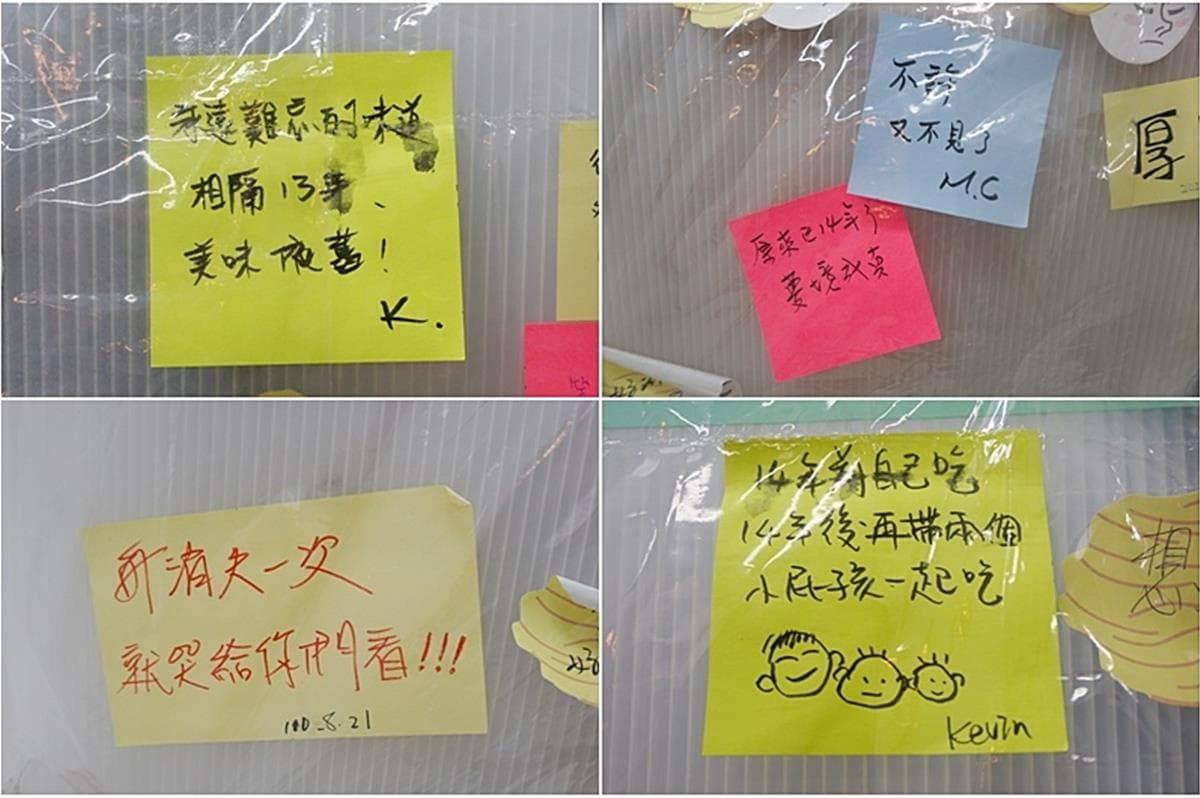 永遠難忘的味道
相隔13年、
美味依舊!
K.
不許
又不見了
M.C
厚
原來已14年了
夢境成真
好
再消失一次
就哭給你們看!!!
100.8.21
14年前自己吃
14年後再帶兩個
小屁孩一起吃
Kevin